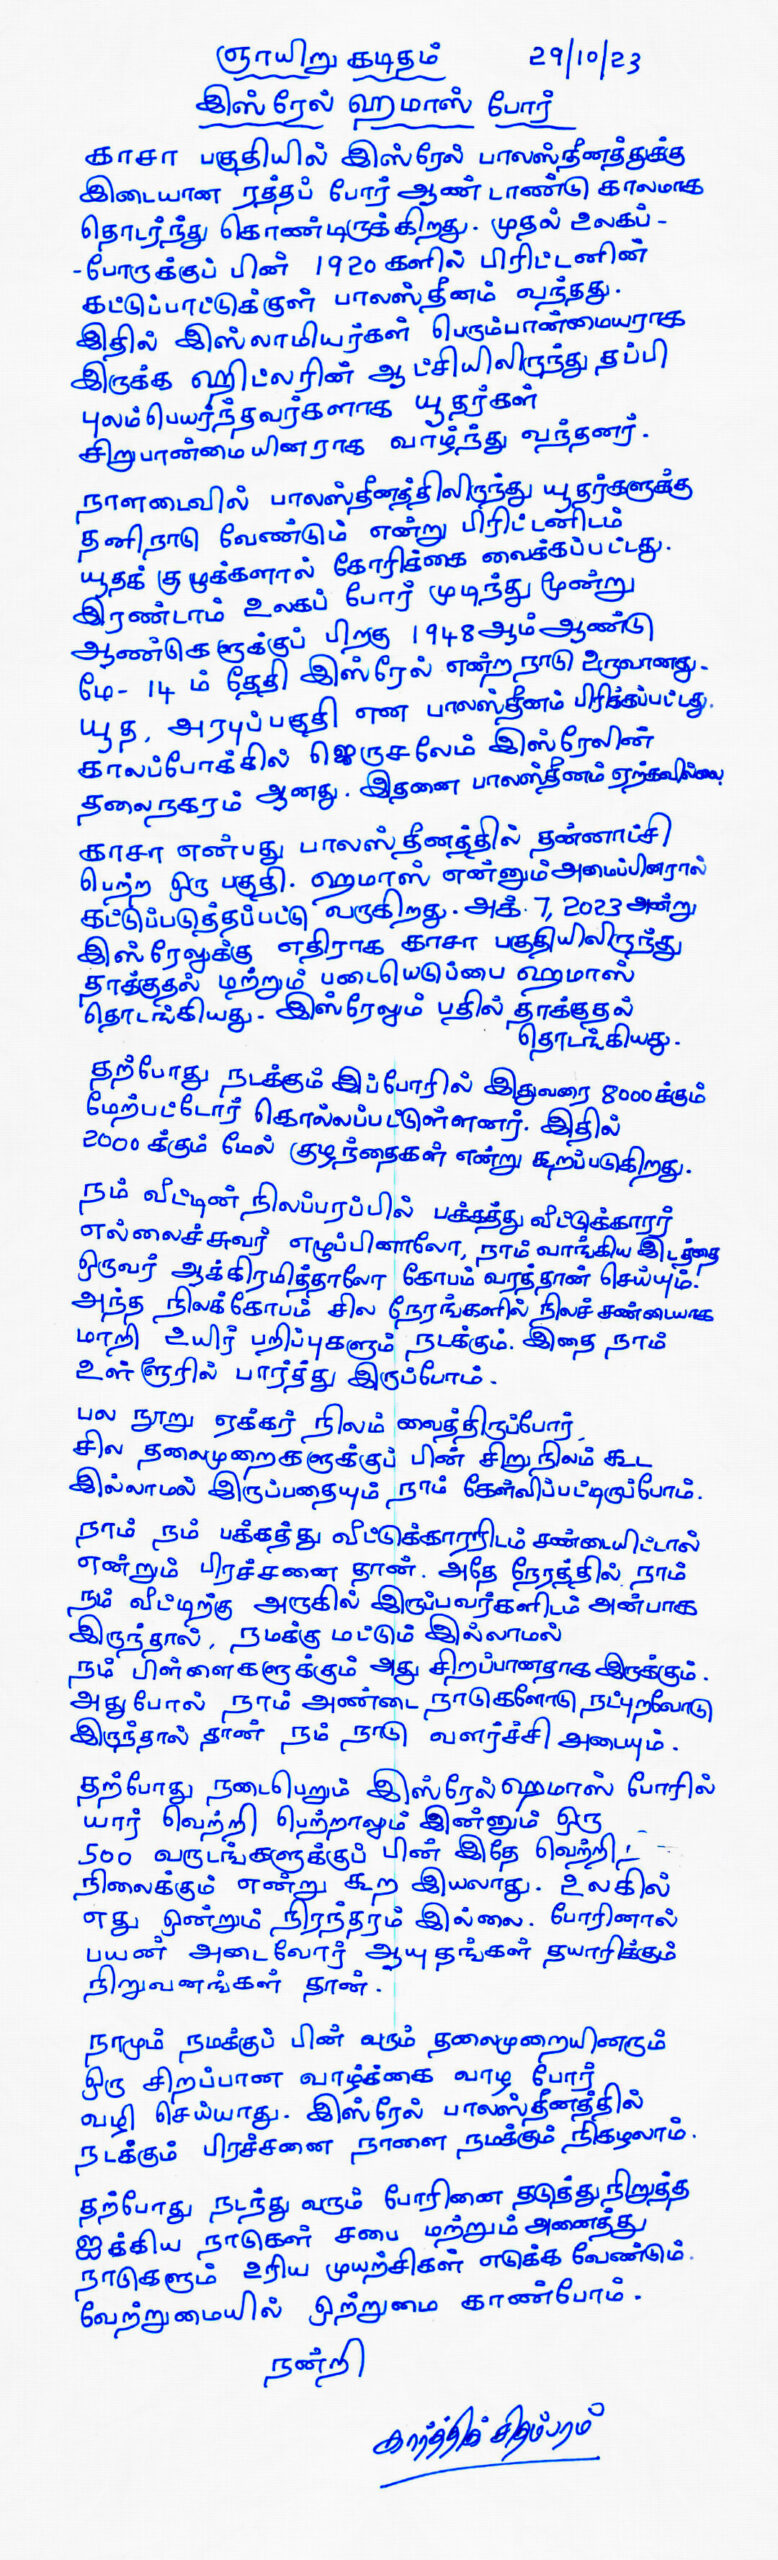 ஞாயிறு கடிதம் 29/10/23
இஸ்ரேல் ஹமாஸ் போர்
காசா பகுதியில் இஸ்ரேல் பாலஸ்தீனத்துக்கு
இடையான ரத்தப் போர் ஆண்டாண்டு காலமாக
தொடர்ந்து கொண்டிருக்கிறது. முதல் உலகப் -
- போருக்குப் பின் 1920 களில் பிரிட்டனின்
கட்டுப்பாட்டுக்குள் பாலஸ்தீனம் வந்தது.
இதில் இஸ்லாமியர்கள் பெரும்பான்மையராக
இருக்க ஹிட்லரின் ஆட்சியிலிருந்து தப்பி
புலம்பெயர்ந்தவர்களாக யூதர்கள்
சிறுபான்மையினராக வாழ்ந்து வந்தனர்.
நாளடைவில் பாலஸ்தீனத்திலிருந்து யூதர்களுக்கு
தனிநாடு வேண்டும் என்று பிரிட்டனிடம்
யூதக் குழுக்களால் கோரிக்கை வைக்கப்பட்டது.
இரண்டாம் உலகப் போர் முடிந்து மூன்று
ஆண்டுகளுக்குப் பிறகு 1948 ஆம் ஆண்டு
மே - 14 ம் தேதி இஸ்ரேல் என்ற நாடு உருவானது.
யூத, அரபுப்பகுதி என பாலஸ்தீனம் பிரிக்கப்பட்டது.
காலப்போக்கில் ஜெருசலேம் இஸ்ரேலின்
தலைநகரம் ஆனது. இதனை பாலஸ்தீனம் ஏற்கவில்லை.
காசா என்பது பாலஸ்தீனத்தில் தன்னாட்சி
பெற்ற ஒரு பகுதி. ஹமாஸ் என்னும் அமைப்பினரால்
கட்டுப்படுத்தப்பட்டு வருகிறது. அக். 7, 2023 அன்று
இஸ்ரேலுக்கு எதிராக காசா பகுதியிலிருந்து
தாக்குதல் மற்றும் படையெடுப்பை ஹமாஸ்
தொடங்கியது. இஸ்ரேலும் பதில் தாக்குதல்
தொடங்கியது.
தற்போது நடக்கும் இப்போரில் இதுவரை 8000 க்கும்
மேற்பட்டோர் கொல்லப்பட்டுள்ளனர். இதில்
2000 க்கும் மேல் குழந்தைகள் என்று கூறப்படுகிறது.
நம் வீட்டின் நிலப்பரப்பில் பக்கத்து வீட்டுக்காரர்
எல்லைச்சுவர் எழுப்பினாலோ, நாம் வாங்கிய இடத்தை
ஒருவர் ஆக்கிரமித்தாலோ கோபம் வரத்தான் செய்யும்.
அந்த நிலக்கோபம் சில நேரங்களில் நிலச் சண்டையாக
மாறி உயிர் பறிப்புகளும் நடக்கும். இதை நாம்
உள்ளூரில் பார்த்து இருப்போம்.
பல நூறு ஏக்கர் நிலம் வைத்திருப்போர்
சில தலைமுறைகளுக்குப் பின் சிறுநிலம் கூட
இல்லாமல் இருப்பதையும் நாம் கேள்விப்பட்டிருப்போம்.
நாம் நம் பக்கத்து வீட்டுக்காரரிடம் சண்டையிட்டால்
என்றும் பிரச்சனை தான். அதே நேரத்தில் நாம்
நம் வீட்டிற்கு அருகில் இருப்பவர்களிடம் அன்பாக
இருந்தால், நமக்கு மட்டும் இல்லாமல்
நம் பிள்ளைகளுக்கும் அது சிறப்பானதாக இருக்கும்.
அதுபோல் நாம் அண்டை நாடுகளோடு நட்புறவோடு
இருந்தால் தான் நம் நாடு வளர்ச்சி அடையும்.
தற்போது நடைபெறும் இஸ்ரேல் ஹமாஸ் போரில்
யார் வெற்றி பெற்றாலும் இன்னும் ஒரு
500 வருடங்களுக்குப் பின் இதே வெற்றி
நிலைக்கும் என்று கூற இயலாது. உலகில்
எது ஒன்றும் நிரந்தரம் இல்லை. போரினால்
பயன் அடைவோர் ஆயுதங்கள் தயாரிக்கும்
நிறுவனங்கள் தான்.
நாமும் நமக்குப் பின் வரும் தலைமுறையினரும்
ஒரு சிறப்பான வாழ்க்கை வாழ போர்
வழி செய்யாது. இஸ்ரேல் பாலஸ்தீனத்தில்
நடக்கும் பிரச்சனை நாளை நமக்கும் நிகழலாம்.
தற்போது நடந்து வரும் போரினை தடுத்து நிறுத்த
ஐக்கிய நாடுகள் சபை மற்றும் அனைத்து
நாடுகளும் உரிய முயற்சிகள் எடுக்க வேண்டும்.
வேற்றுமையில் ஒற்றுமை காண்போம்.
நன்றி
கார்த்திக் சிதம்பரம்